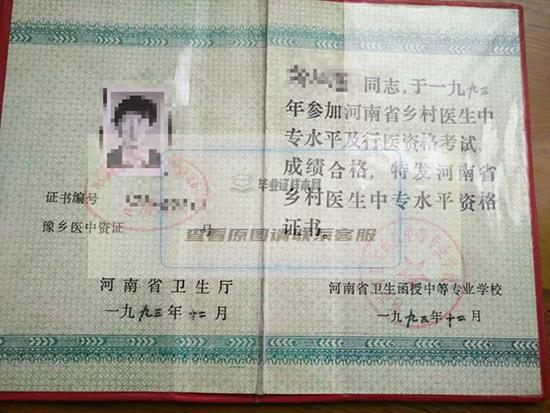 同志,于一九九三
年参加河南省乡村医生中
专水平及行医资格考试,
成绩合格,特发河南省
乡村医生中专水平资格
证书。
证书编号
豫乡医中资证 号
河南省卫生厅
一九九三年十二月
河南省卫生函授中等专业学校
一九九三年十二月
毕业证样本网
查看原图请联系客服